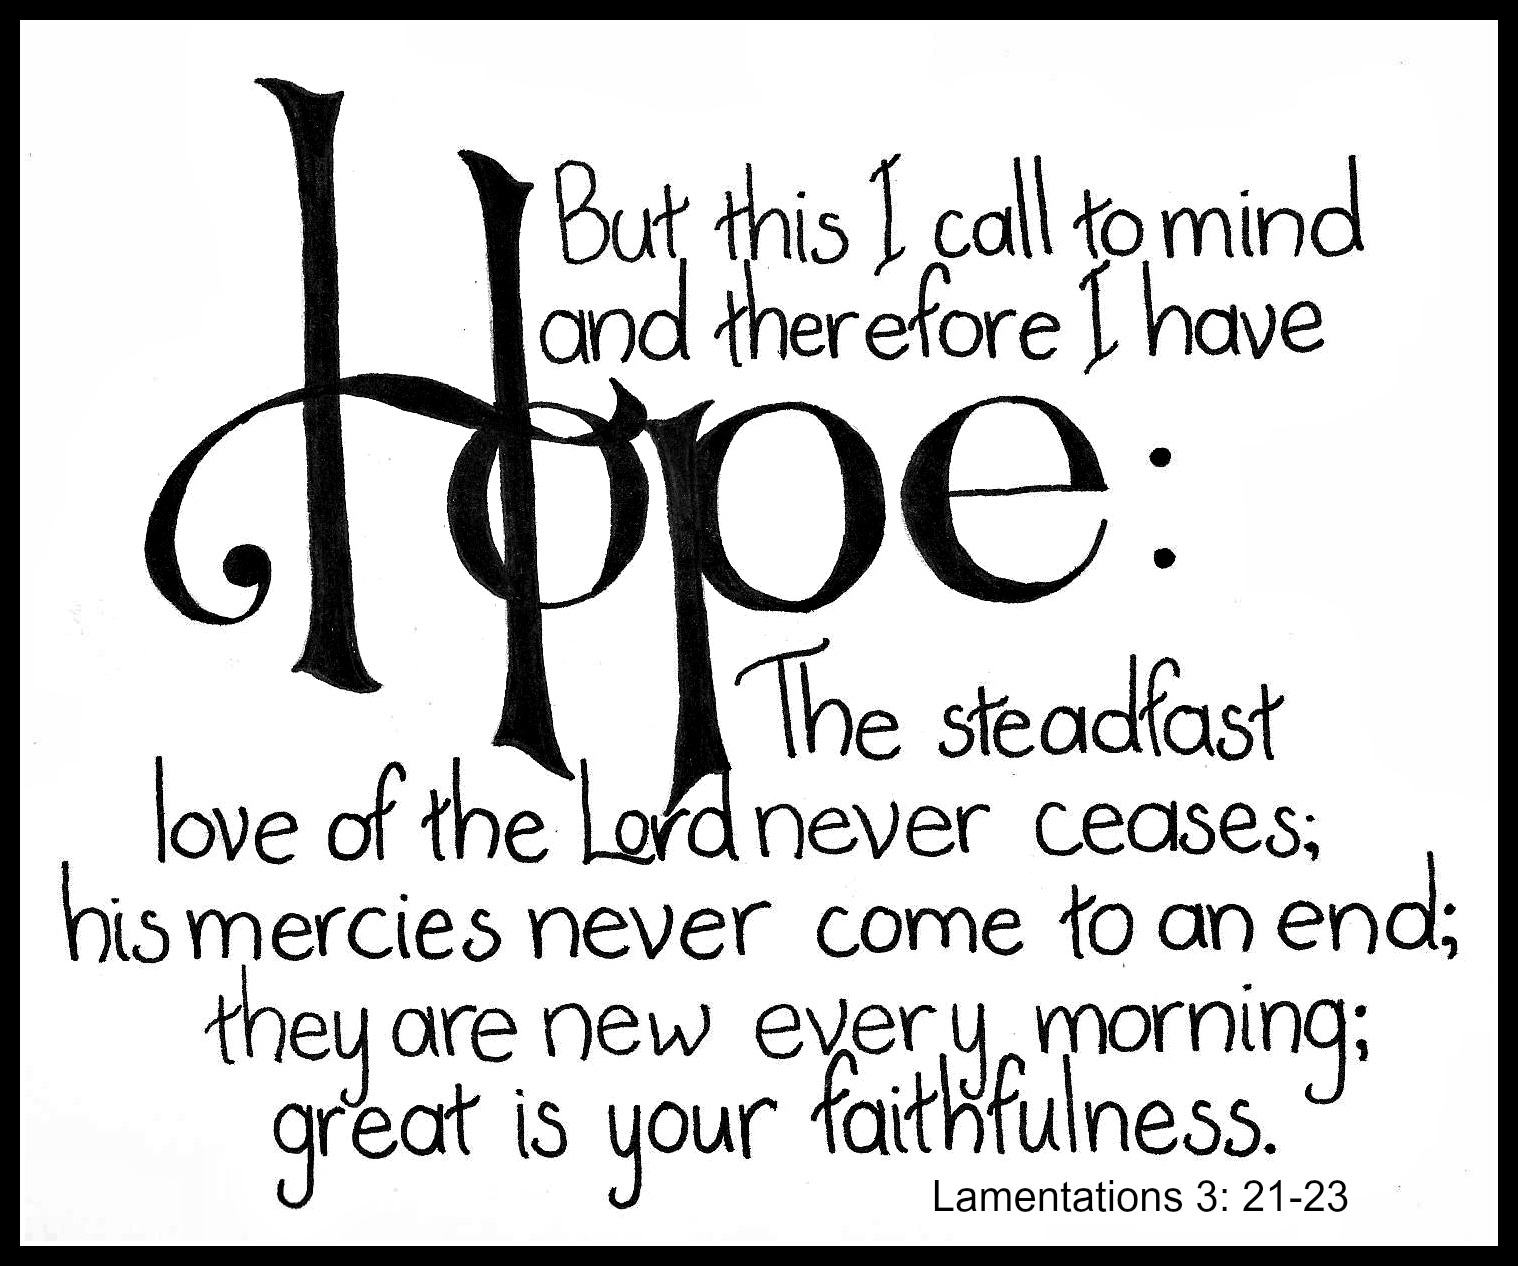 But this I call to mind
and therefore I have
Hope:
The steadfast
love of the Lord never ceases;
his mercies never come to an end;
they are new every morning;
great is your faithfulness.
Lamentations 3: 21-23